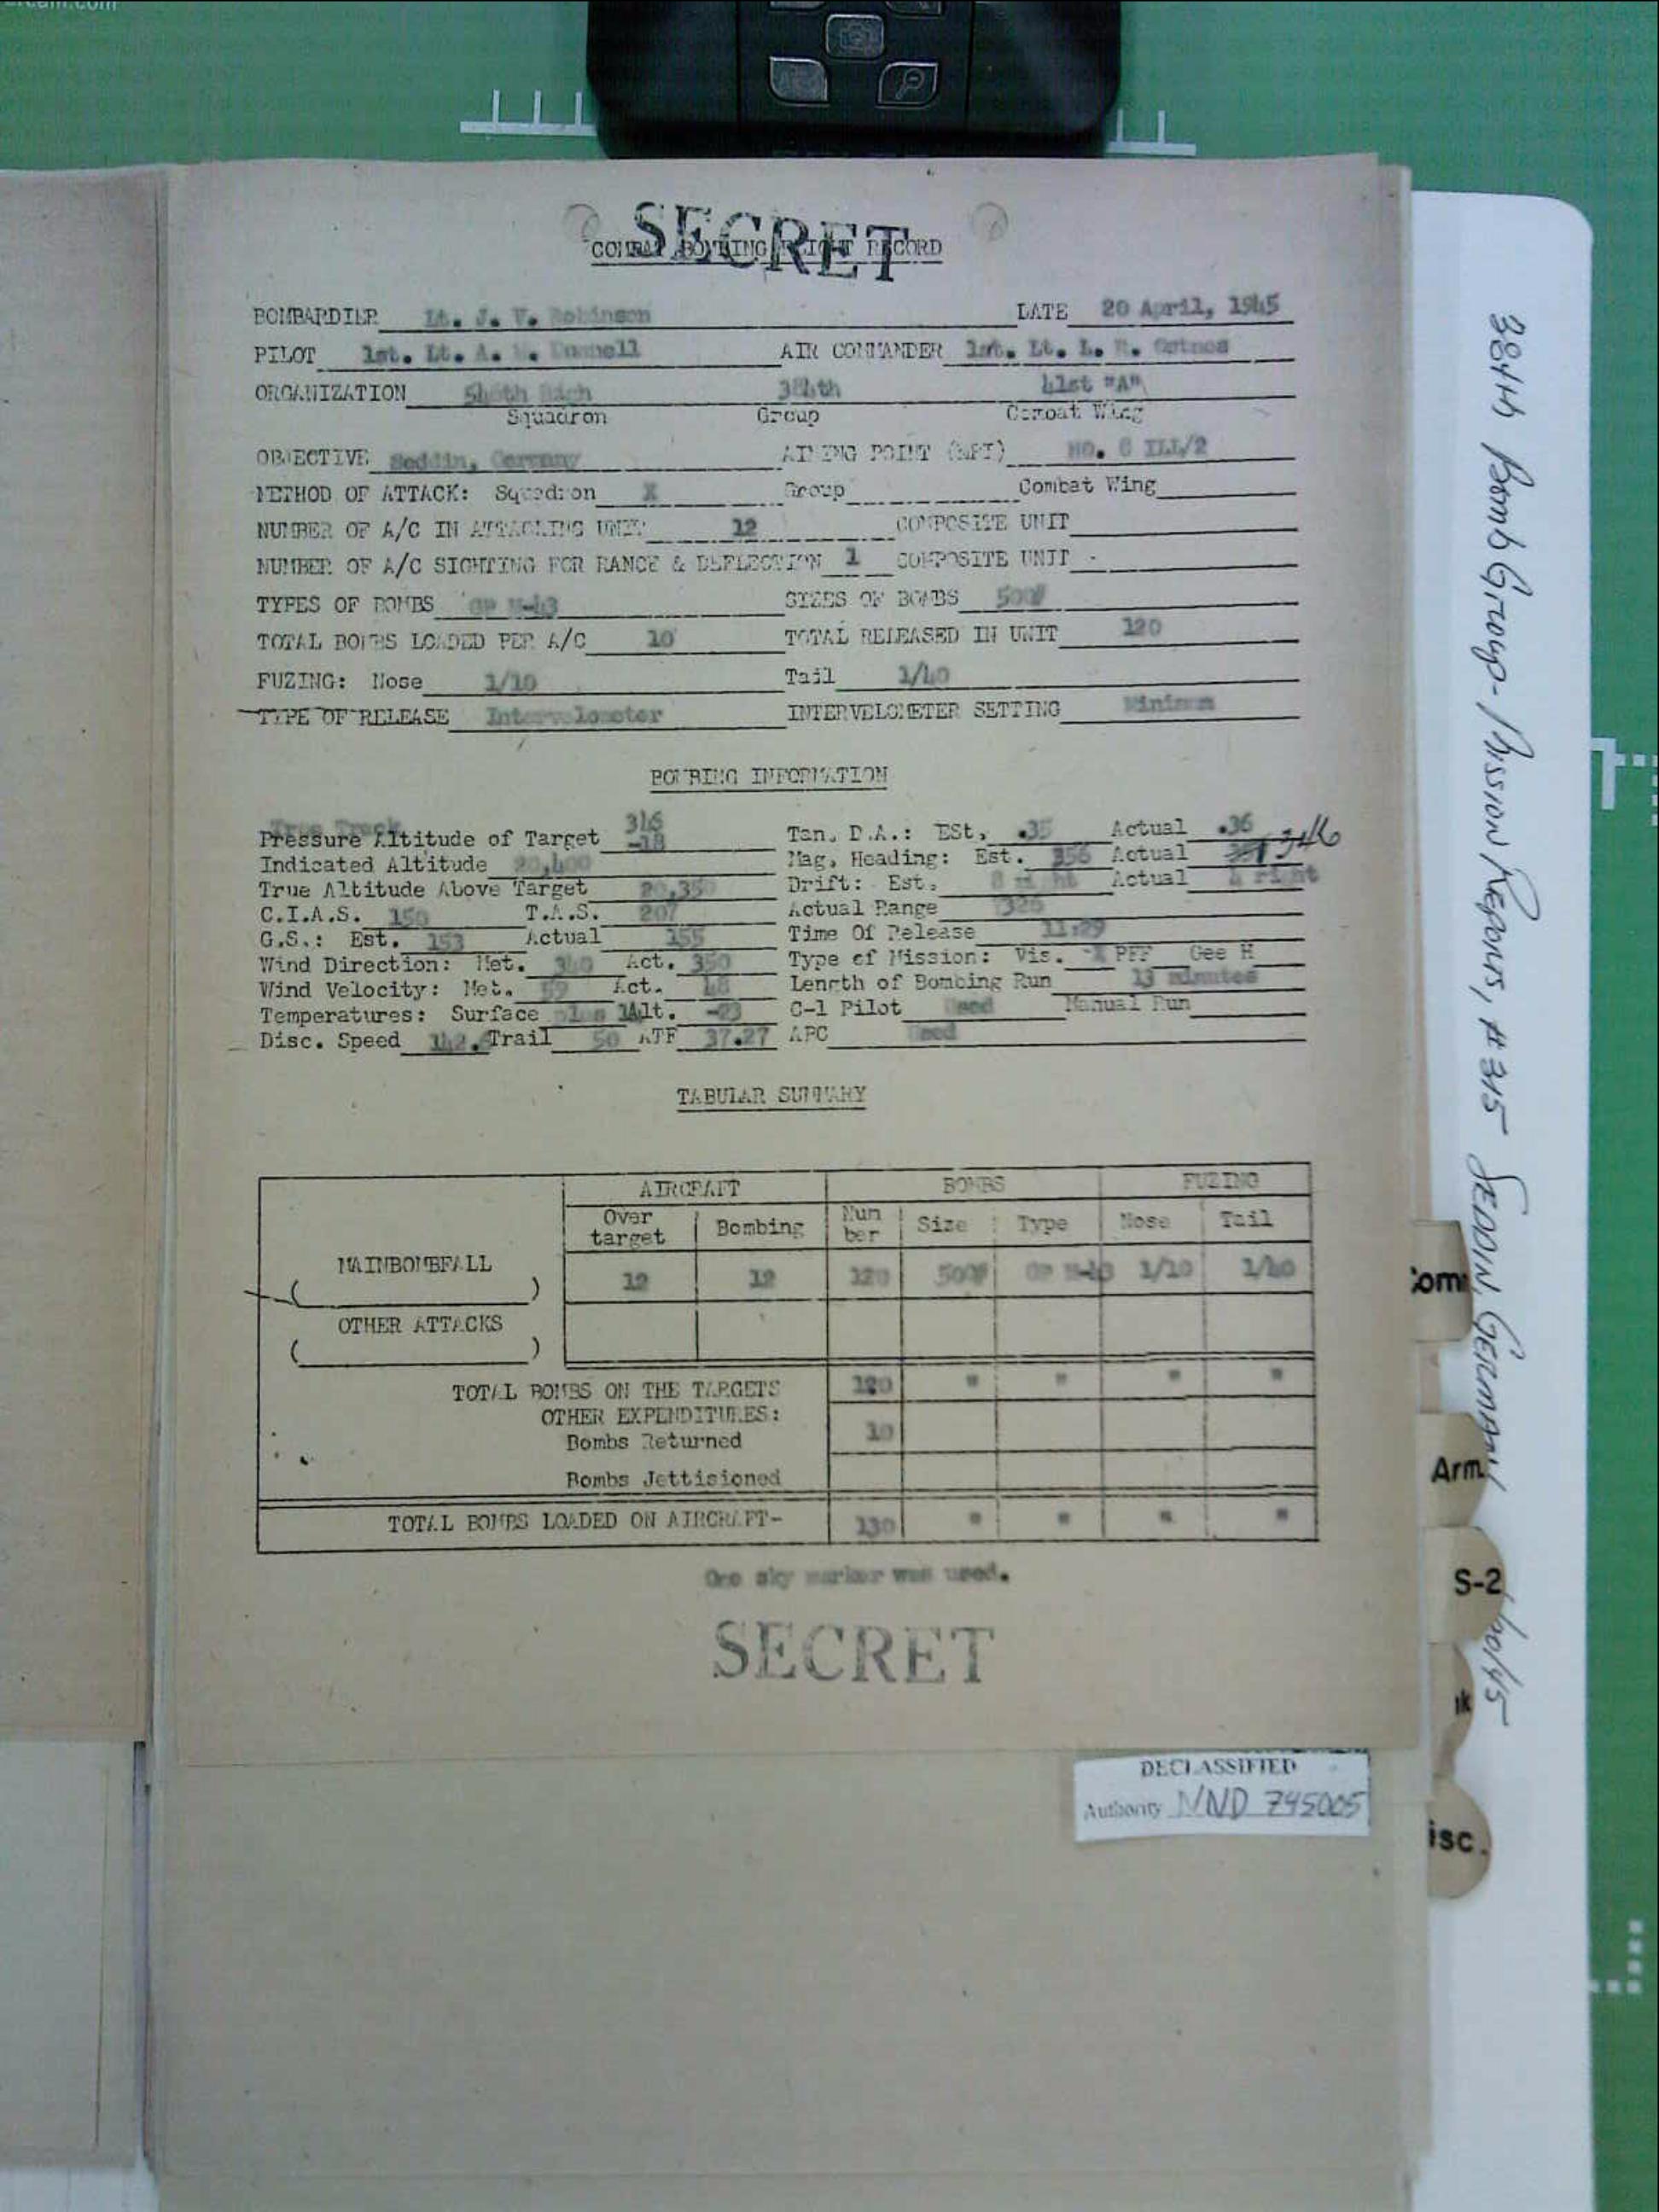 SECRET
COMBAT BOMBING FLIGHT RECORD
BOMBARDIER Lt. J. V. Robinson DATE 20 April, 1945
PILOT 1st. Lt. A. AIR COMMANDER 1st. Lt. L. R.
ORGANIZATION 384th 41st "A"
Squadron Group Combat Wing
OBJECTIVE Seddin, Germany AIMING POINT (MPI) NO. 6 ILL/2
METHOD OF ATTACK: Squadron X Group Combat Wing
NUMBER OF A/C IN ATTACKING UNIT 12 COMPOSITE UNIT
NUMBER OF A/C SIGHTING FOR RANGE & DEFLECTION 1 COMPOSITE UNIT -
TYPES OF BOMBS GP M-43 SIZES OF BOMBS 500#
TOTAL BOMBS LOADED PER A/C 10 TOTAL RELEASED IN UNIT 120
FUZING: Nose 1/10 Tail 1/40
TYPE OF RELEASE Intervelometer INTERVELOMETER SETTING Minimum
BOMBING INFORMATION
True Track 346
Pressure Altitude of Target -18 Tan. D.A.: Est. .35 Actual .36
Indicated Altitude 20,400 Mag. Heading: Est. 356 Actual 346
True Altitude Above Target 20,350 Drift: Est. 8 right Actual 4 right
C.I.A.S. 150 T.A.S. 207 Actual Range 7326
G.S.: Est. 153 Actual 155 Time Of Release 11:29
Wind Direction: Met. 340 Act. 350 Type of Mission: Vis. X PFF Gee H
Wind Velocity: Met. 59 Act. 48 Length of Bombing Run 13 minutes
Temperatures: Surface plus Alt. -23 C-1 Pilot Used Manual Run
Disc. Speed 142. Trail 50 ATF 37.27 APC Used
TABULAR SUMMARY
AIRCRAFT BOMBS FUZING
Over target Bombing Number Size Type Nose Tail
MAINBOMBFALL
( ) 12 12 120 500# GP M-43 1/10 1/40
OTHER ATTACKS
( )
TOTAL BOMBS ON THE TARGETS 120 " " " "
OTHER EXPENDITURES:
Bombs Returned 10
Bombs Jettisioned
TOTAL BOMBS LOADED ON AIRCRAFT- 130 " " " "
One sky marker was used.
SECRET
DECLASSIFIED
Authority NND 745005
384th Bomb Group - Mission Reports, #315 SEDDIN, GERMANY
Com
Arm
S-2
isc.